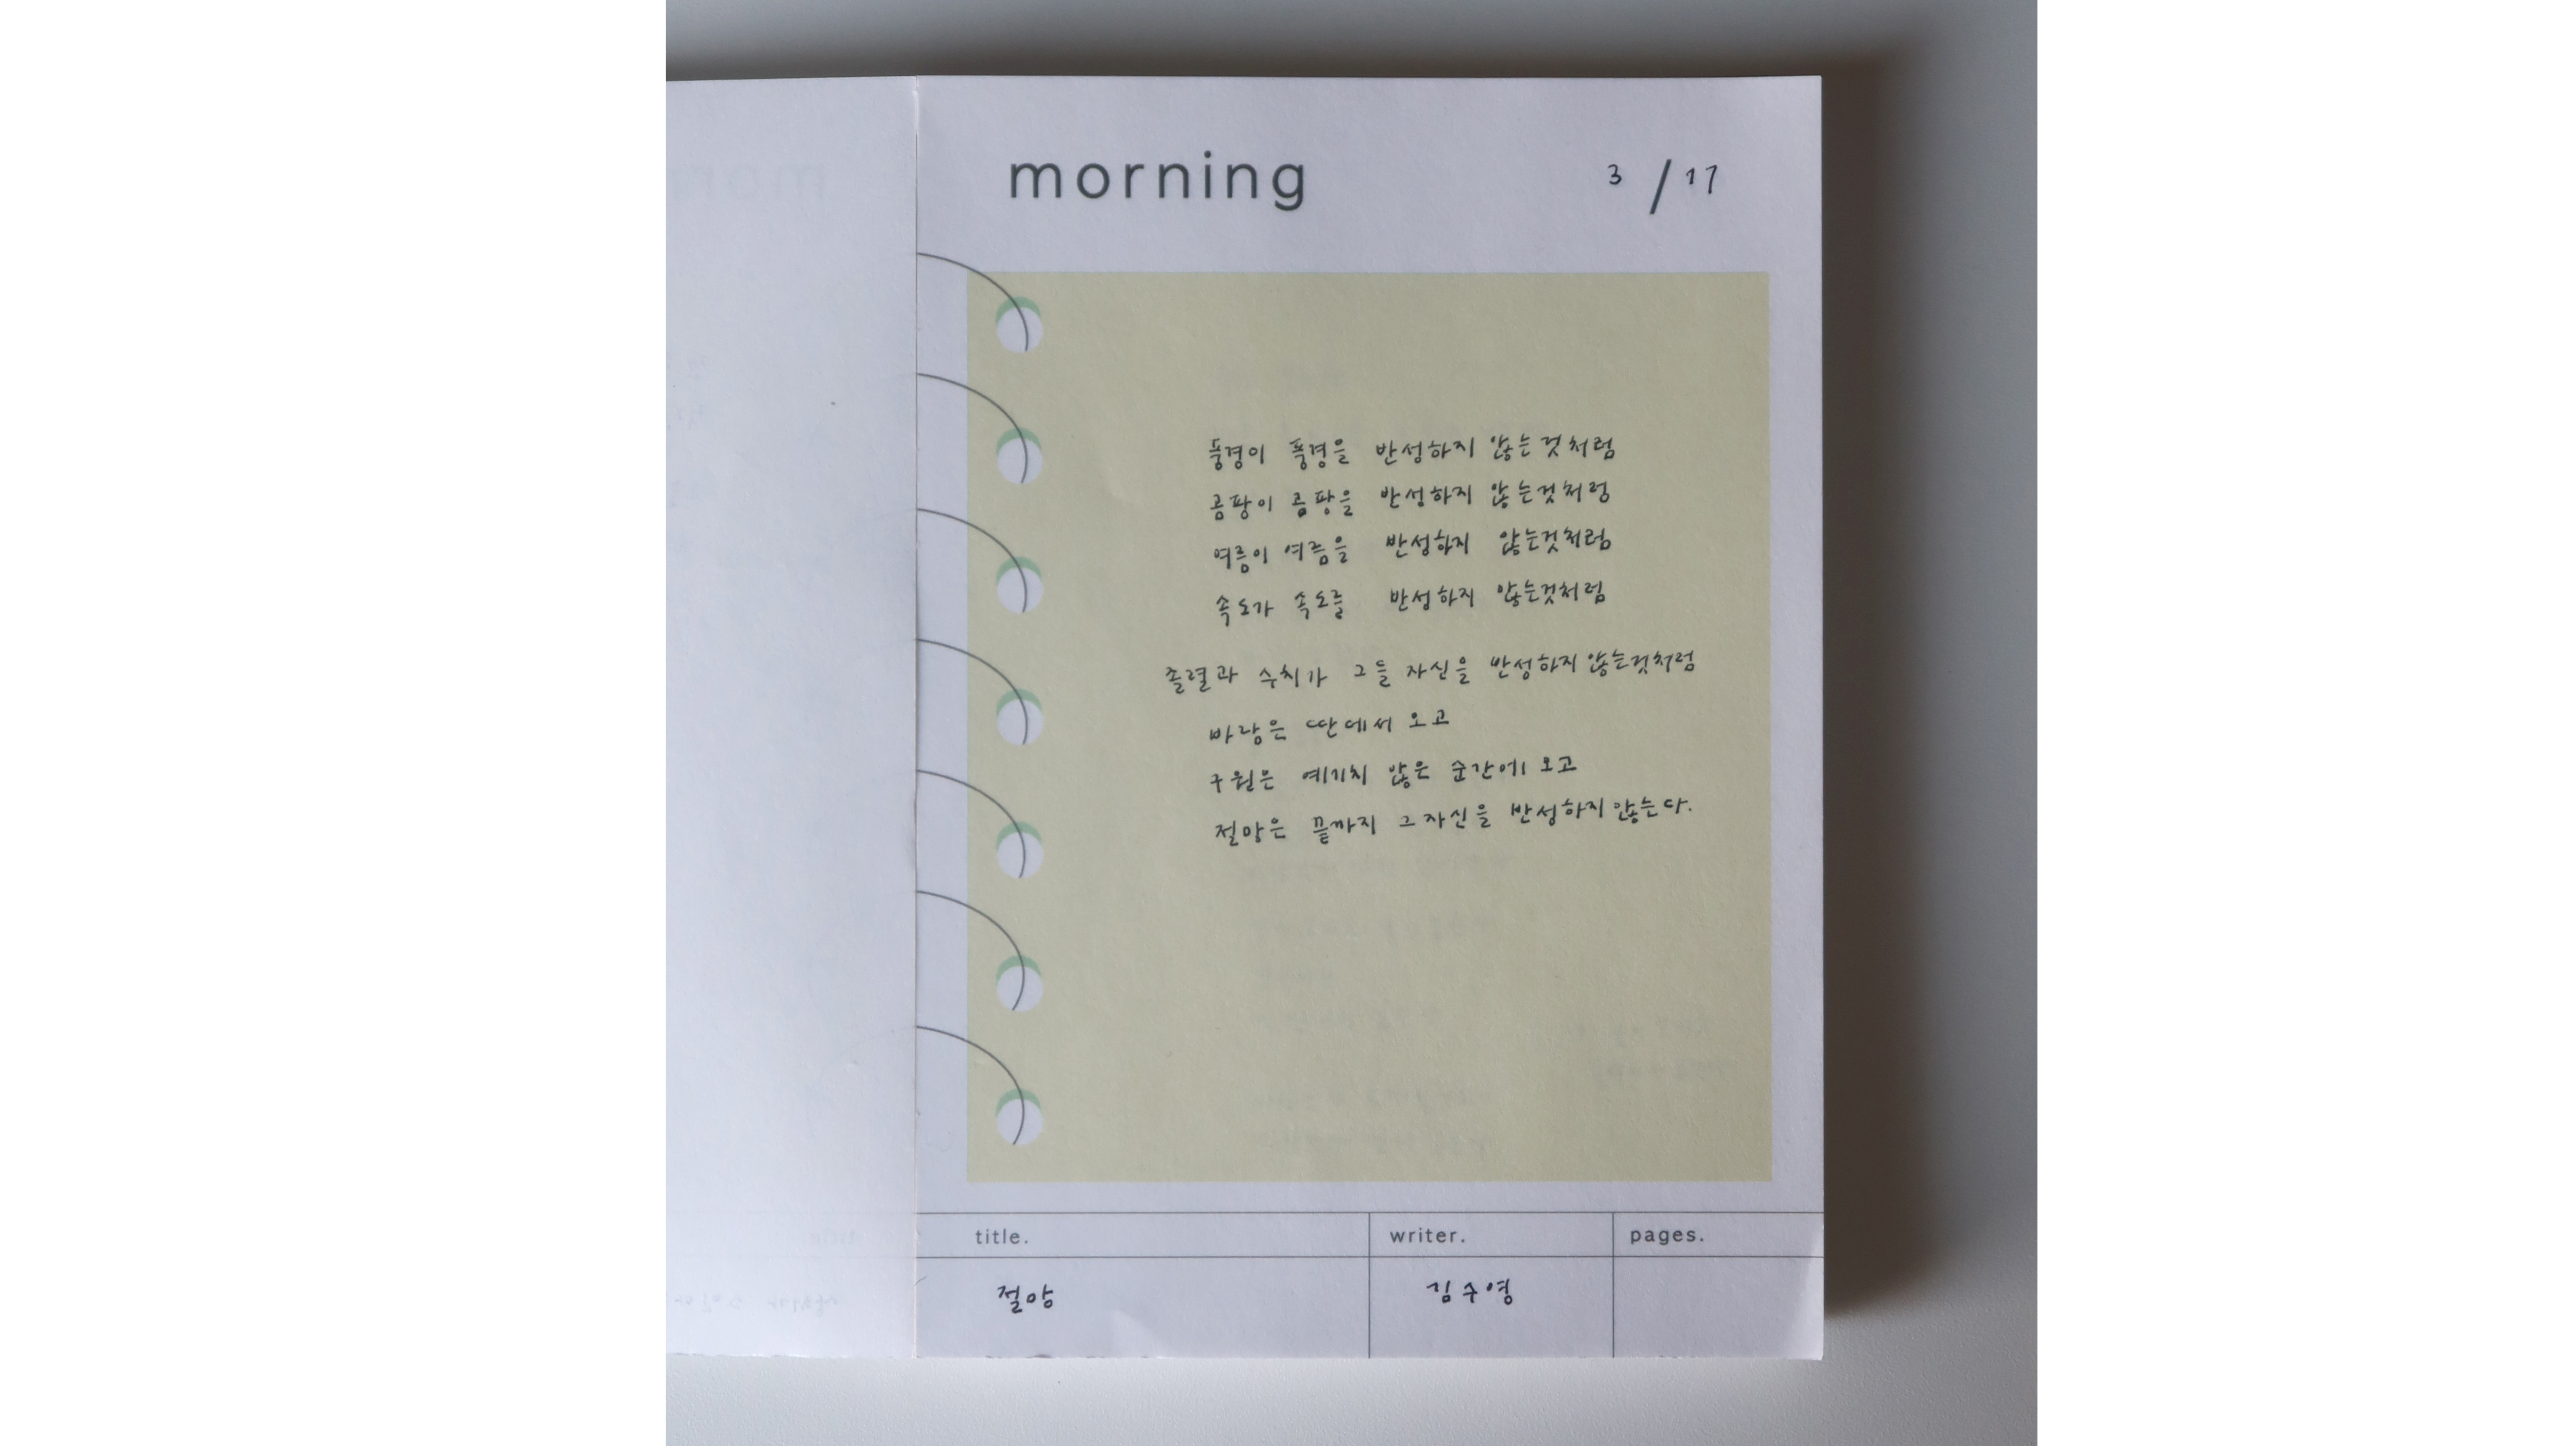 morning
3 / 17
풍경이 풍경을 반성하지 않는것처럼
곰팡이 곰팡을 반성하지 않는것처럼
여름이 여름을 반성하지 않는것처럼
속도가 속도를 반성하지 않는것처럼
졸렬과 수치가 그들 자신을 반성하지않는것처럼
바람은 딴데서 오고
구원은 예기치 않은 순간에 오고
절망은 끝까지 그 자신을 반성하지않는다.
title.
writer.
pages.
절망
김수영